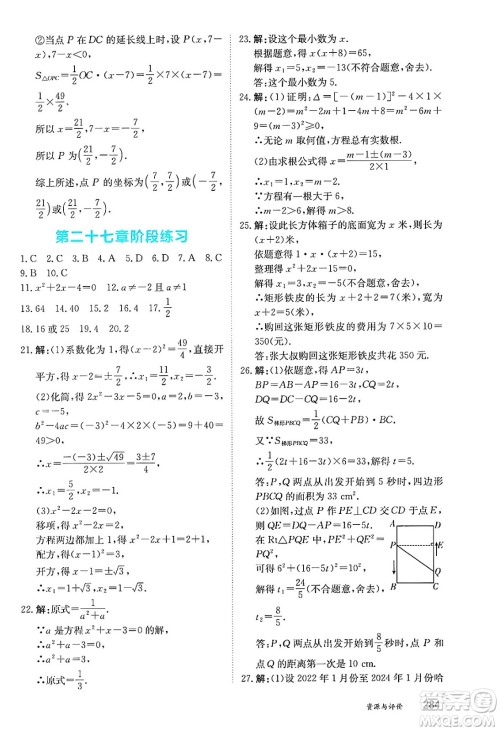 ②当点 P 在 DC 的延长线上时,设 P(x,7-
x),7-x<0,
S△OPC=1/2 OC·(x-7)=1/2×7×(x-7)
=49/4.
所以 x=21/2,7-x=-7/2.
所以 P(21/2,-7/2).
综上所述,点 P 的坐标为(7/2,7/2)或(21/2,
-7/2).
第二十七章阶段练习
1. C 2. C 3. B 4. D 5. B 6. D 7. A 8. C
9. B 10. A
11. x²+2x-4=0 12. a≤1且 a≠0
13. 64 14. 20% 15. 0 16. x 17. 1/2
18. 16 或 25 19. 12 20. 2
21. 解:(1)系数化为 1,得(x-2)²=4/9,直接开
平方,得 x-2=±2/3,∴x₁=8/3,x₂=4/3.
(2)化简,得 2x²-5x-3=0,
b²-4ac=(-5)²-4×2×(-3)=25+24=
49>0,
∴x=-(-5)±√49/2×2=5±7/4,
∴x₁=-1/2,x₂=3.
(3)x²-2x-2=0,移项,得 x²-2x=2,
方程两边都加上 1,得 x²-2x+1=2+1,
配方,得(x-1)²=3,开方,得 x-1=±√3,
∴x₁=1+√3,x₂=1-√3.
22. 解:原式=1/a²+a.
∵a 是方程 x²+x-3=0 的解,
∴a²+a-3=0,即 a²+a=3.
∴原式=1/a²+a=1/3.
23. 解:设这个最小数为 x.
根据题意,得 x(x+8)=65.
解得 x₁=5,x₂=-13(不符合题意,舍去).
答:这个最小数为 5.
24. 解:(1)证明:Δ=[-(m-1)]²-4×1×
(m-2)=m²-2m+1-4m+8=m²-6m+
9=(m-3)²≥0,
∴无论 m 取何值,方程总有实数根.
(2)由求根公式得 x=m-1±(m-3)/2,
∴x₁=m-2,x₂=1.
∵方程有一根大于 6,
∴m-2>6,∴m>8.
25. 解:设此长方体箱子的底面宽为 x m.
依题意,得 1·x·(x+2)=15.
解得 x₁=-5(不合题意,舍去),x₂=3.
∴矩形铁皮的长为 x+2+2=7,宽为
x+2=5.
∴购买这张矩形铁皮共花 7×5×10=
350(元).
答:张大叔购回这张矩形铁皮共花 350 元.
26. 解:(1)由已知,得 AP=3t,CQ=2t,
BP=AB-AP=16-3t,
DQ=CD-CQ=16-2t.
故 S梯形PBCQ=1/2(CQ+PB)·CB.
又∵S梯形PBCQ=33 cm²,解得 t=5.
答:P,Q 两点从出发开始到 5 秒时,四边形
PBCQ 的面积为 33 cm².
(2)过点 P 作 PE⊥CD 交 CD
于点 E,则 QE=DQ-AP=16-5t,
在 Rt△PQE 中,PE²+QE²=PQ²,
即 6²+(16-5t)²=10²,
解得 t₁=24/5(不合题意,舍去),
t₂=8/5.
答:P,Q 两点从出发开始到 8/5 秒时,点 P 和
点 Q 的距离第一次为 10 cm.
27. 解:(1)设 2022 年 1 月份至 2024 年 1 月份哈
A
D
P
E
Q
B
C
资源与评价